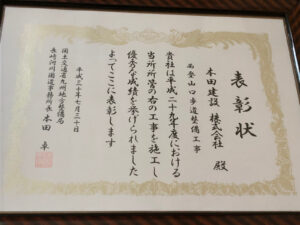 表彰状
本田建設 株式会社 殿
雨登山口歩道整備工事
貴社は平成二十九年度における
当所所管の右の工事を施工し
優秀な成績を挙げられました
よってここに表彰します
平成三十年七月三十日
国土交通省九州地方整備局
長崎河川国道事務所長 本田 卓